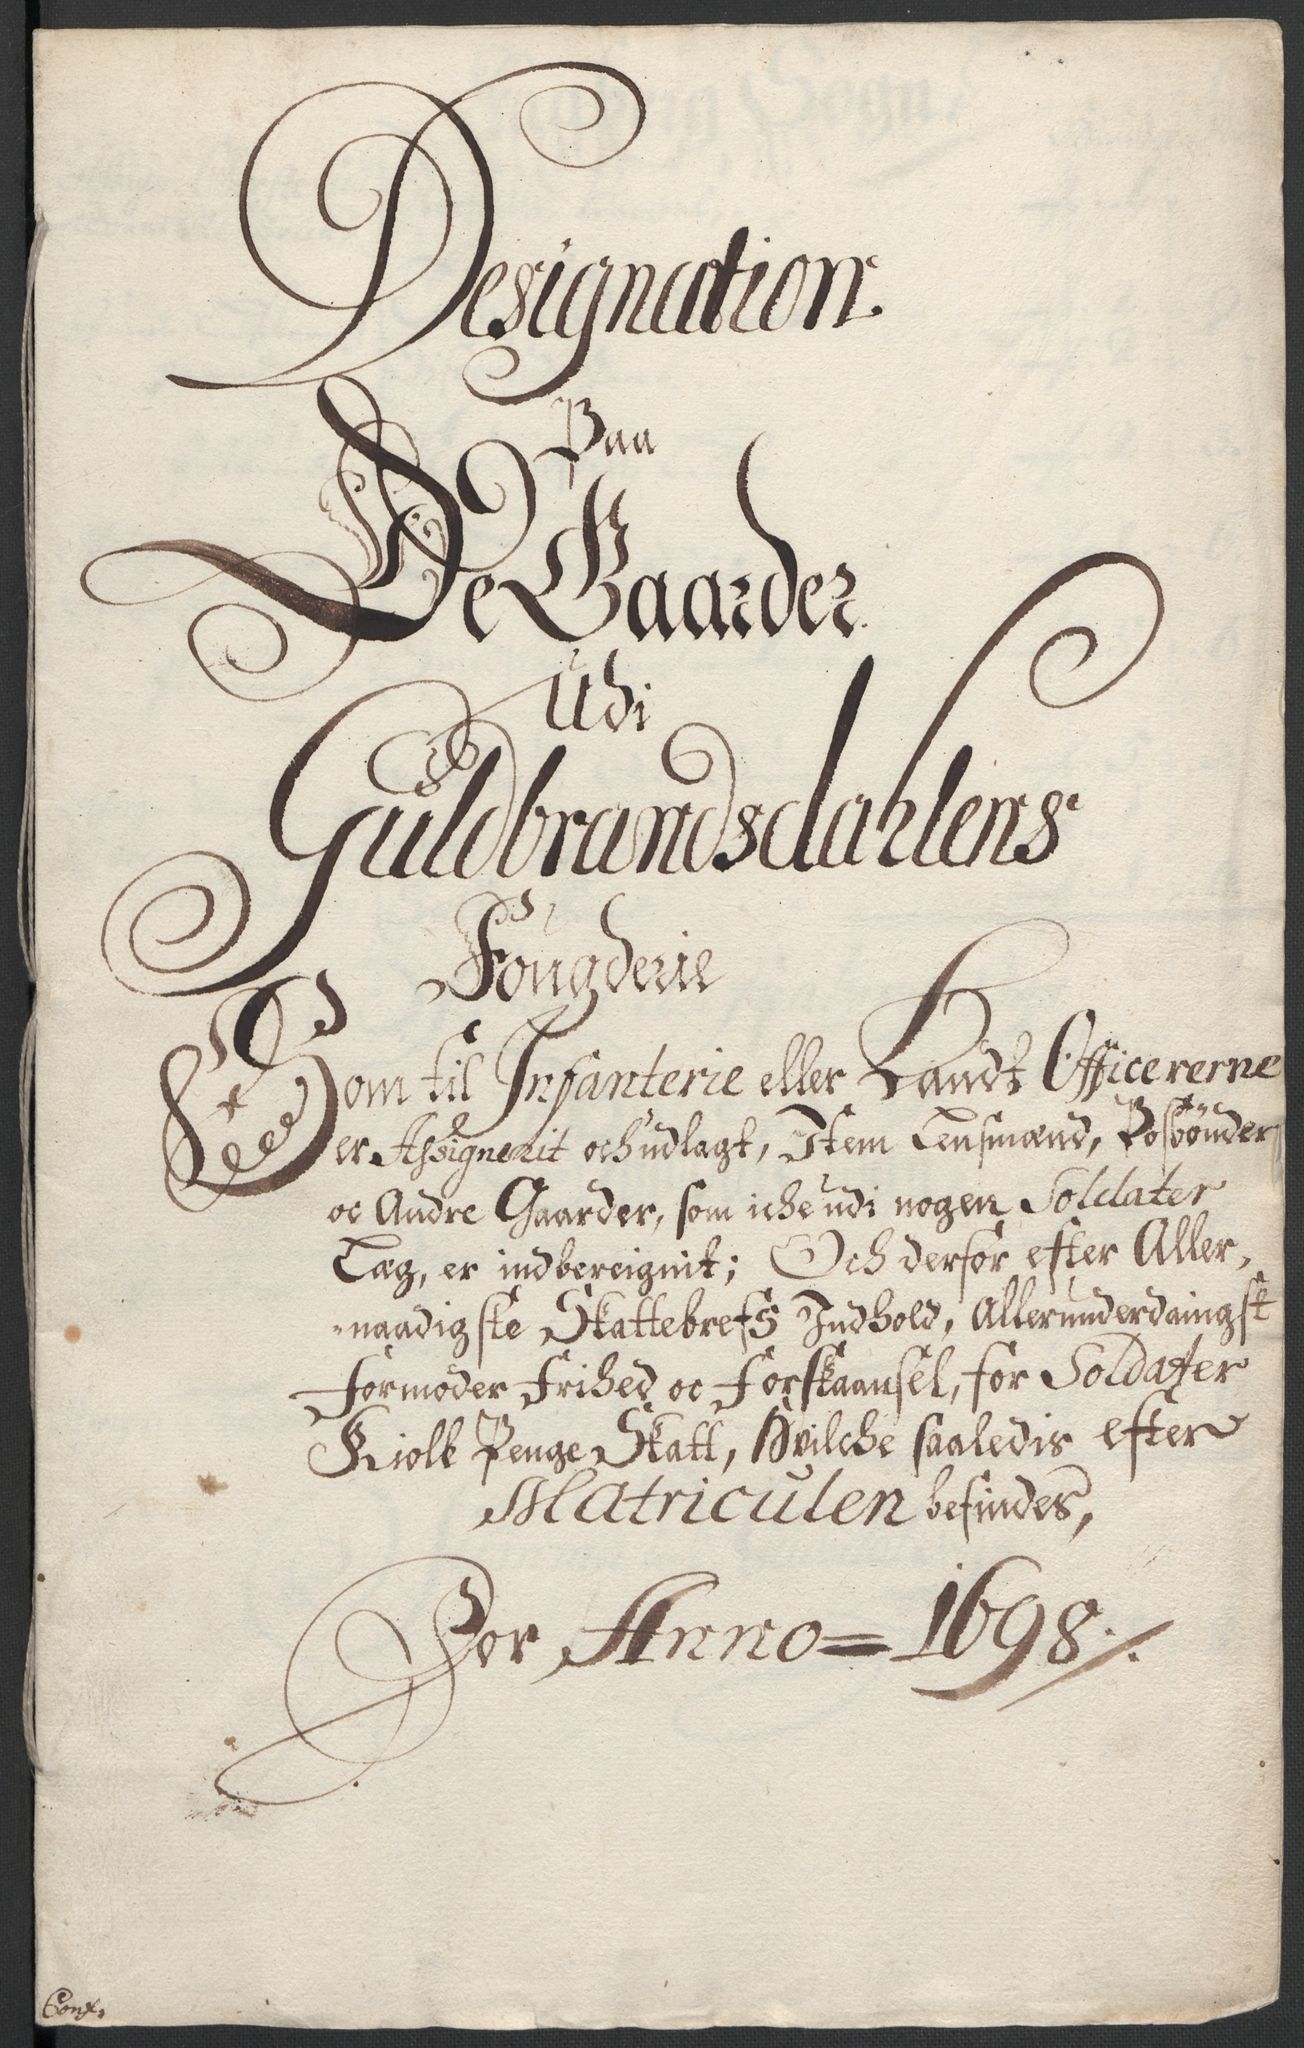 Designation.
Paa
De Gaarder.
Udi
Guldbrandsdahlens
Fougderie
Som til Infanterie eller Landt Officererne
er Assignerit och udlagt, Item Lensmænd, Postbønder
oc Andre Gaarder, som iche udi nogen Soldater
Læg, er indbereignit; Och derfor efter Aller,
naadigste Skattebrefs Indhold, Allerunderdaingst
formoder Frihed oc Forskaansel, for Soldater
Kiole Penge Skatt, Hvilche saaledis efter
Matriculen befindes,
For Anno = 1698.
Conf.